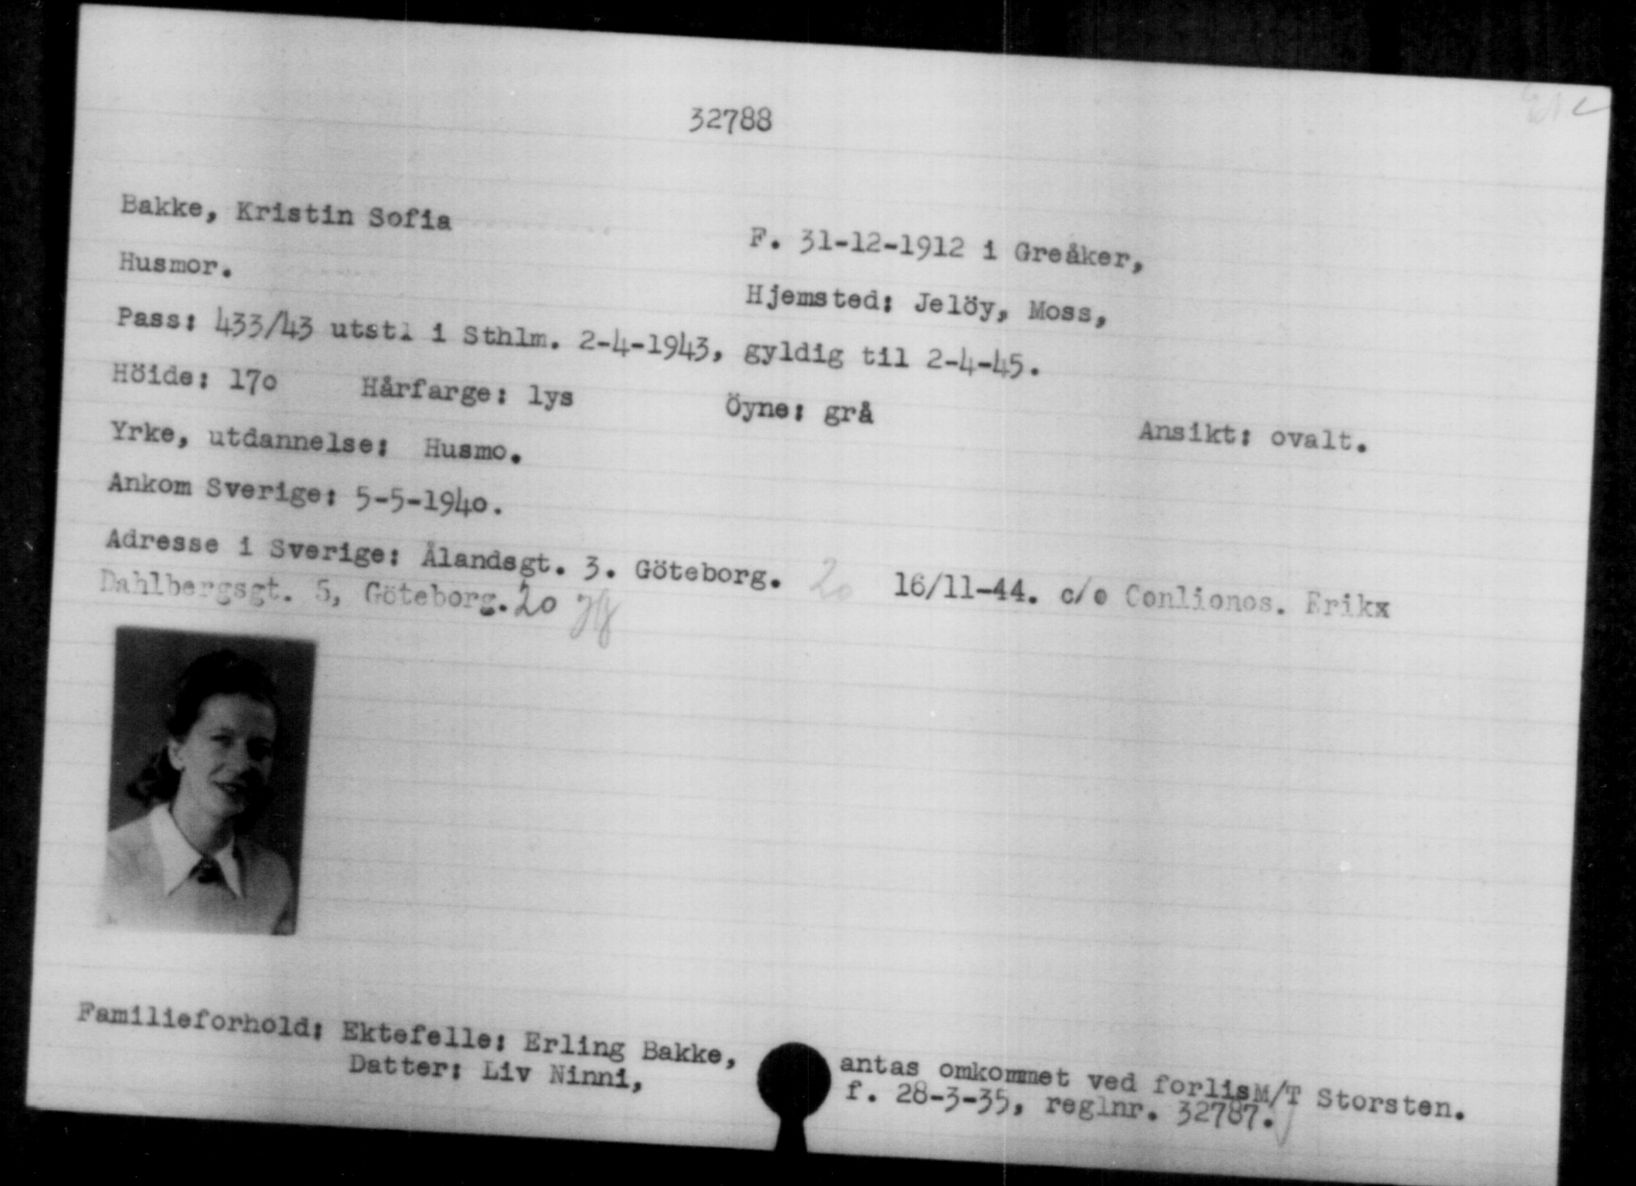 32788
Bakke, Kristin Sofia F. 31-12-1912 i Greåker,
Husmor. Hjemsted: Jelöy, Moss,
Pass: 433/43 utstl i Sthlm. 2-4-1943, gyldig til 2-4-45.
Höide: 170 Hårfarge: lys Öyne: grå Ansikt: ovalt.
Yrke, utdannelse: Husmo.
Ankom Sverige: 5-5-1940.
Adresse i Sverige: Ålandsgt. 3. Göteborg. 20 16/11-44. c/o Conlionos. Erikx
Dahlbergsgt. 5, Göteborg. 20
Familieforhold: Ektefelle: Erling Bakke, antas omkommet ved forlisM/T Storsten.
Datter: Liv Ninni, f. 28-3-35, reglnr. 32787.